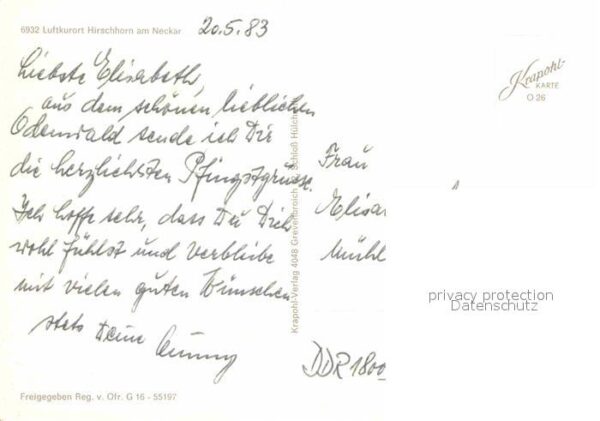 6932 Luftkurort Hirschhorn am Neckar
20.5.83
Liebste Elisabeth,
aus dem schönen, lieblichen
Odenwald sende ich Dir
die herzlichsten Pfingstgrüsse.
Ich hoffe sehr, dass Du Dich
wohl fühlst und verbleibe
mit vielen guten Wünschen
stets Deine
Krapohl-Verlag 4048 Grevenbroich Schloß Hülch
Krapohl-
KARTE
O 26
Frau
Elisa
Mühl
DDR 1800
privacy protection
Datenschutz
Freigegeben Reg. v. Ofr. G 16 - 55197